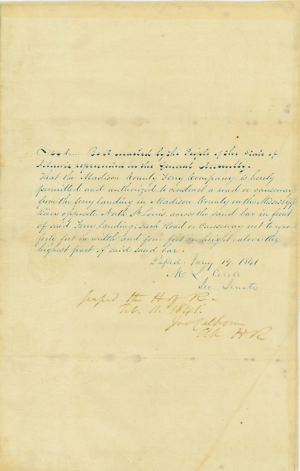 Sec 1. Be it enacted by the People of the State of
Illinois represented in the General Assembly.
That the Madison County Ferry Company is hereby
permitted and authorized to construct a road or causeway
from the ferry landing in Madison County on the Mississippi
River opposite North St Louis across the sand bar in front
of said Ferry landing; said Road or Causeway not to
feet in width and four feet in height, above the
highest part of said Sand bar.
Passed Jany 19. 1841
M. L.
Sec Senate
passed the H of R
Feb. 11. 1841.
Jno Calhoun
Clk H R